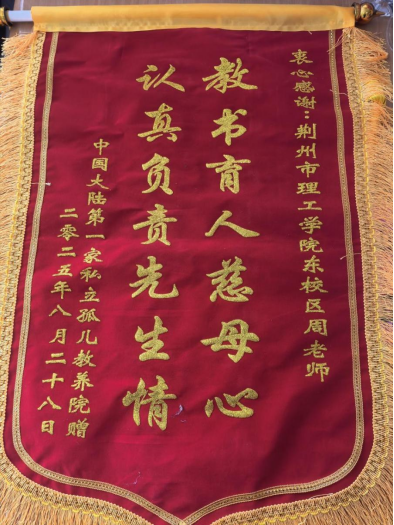 衷心感谢：荆州市理工学院东校区周老师
教书育人慈母心
认真负责先生情
中国大陆第一家私立孤儿教养院赠
二零二五年八月二十八日